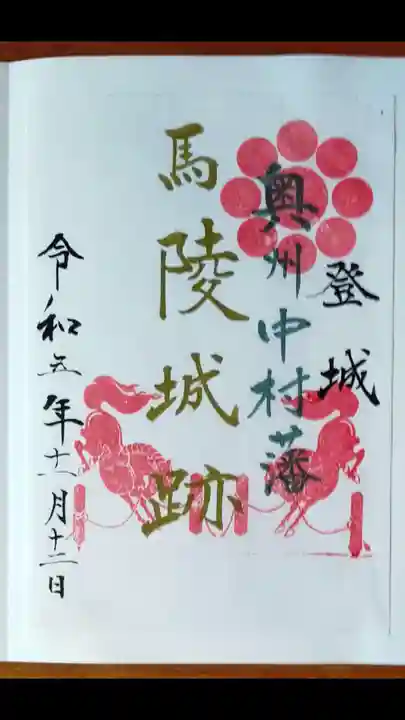 登城
奥州中村藩
馬陵城跡
令和五年十一月十二日